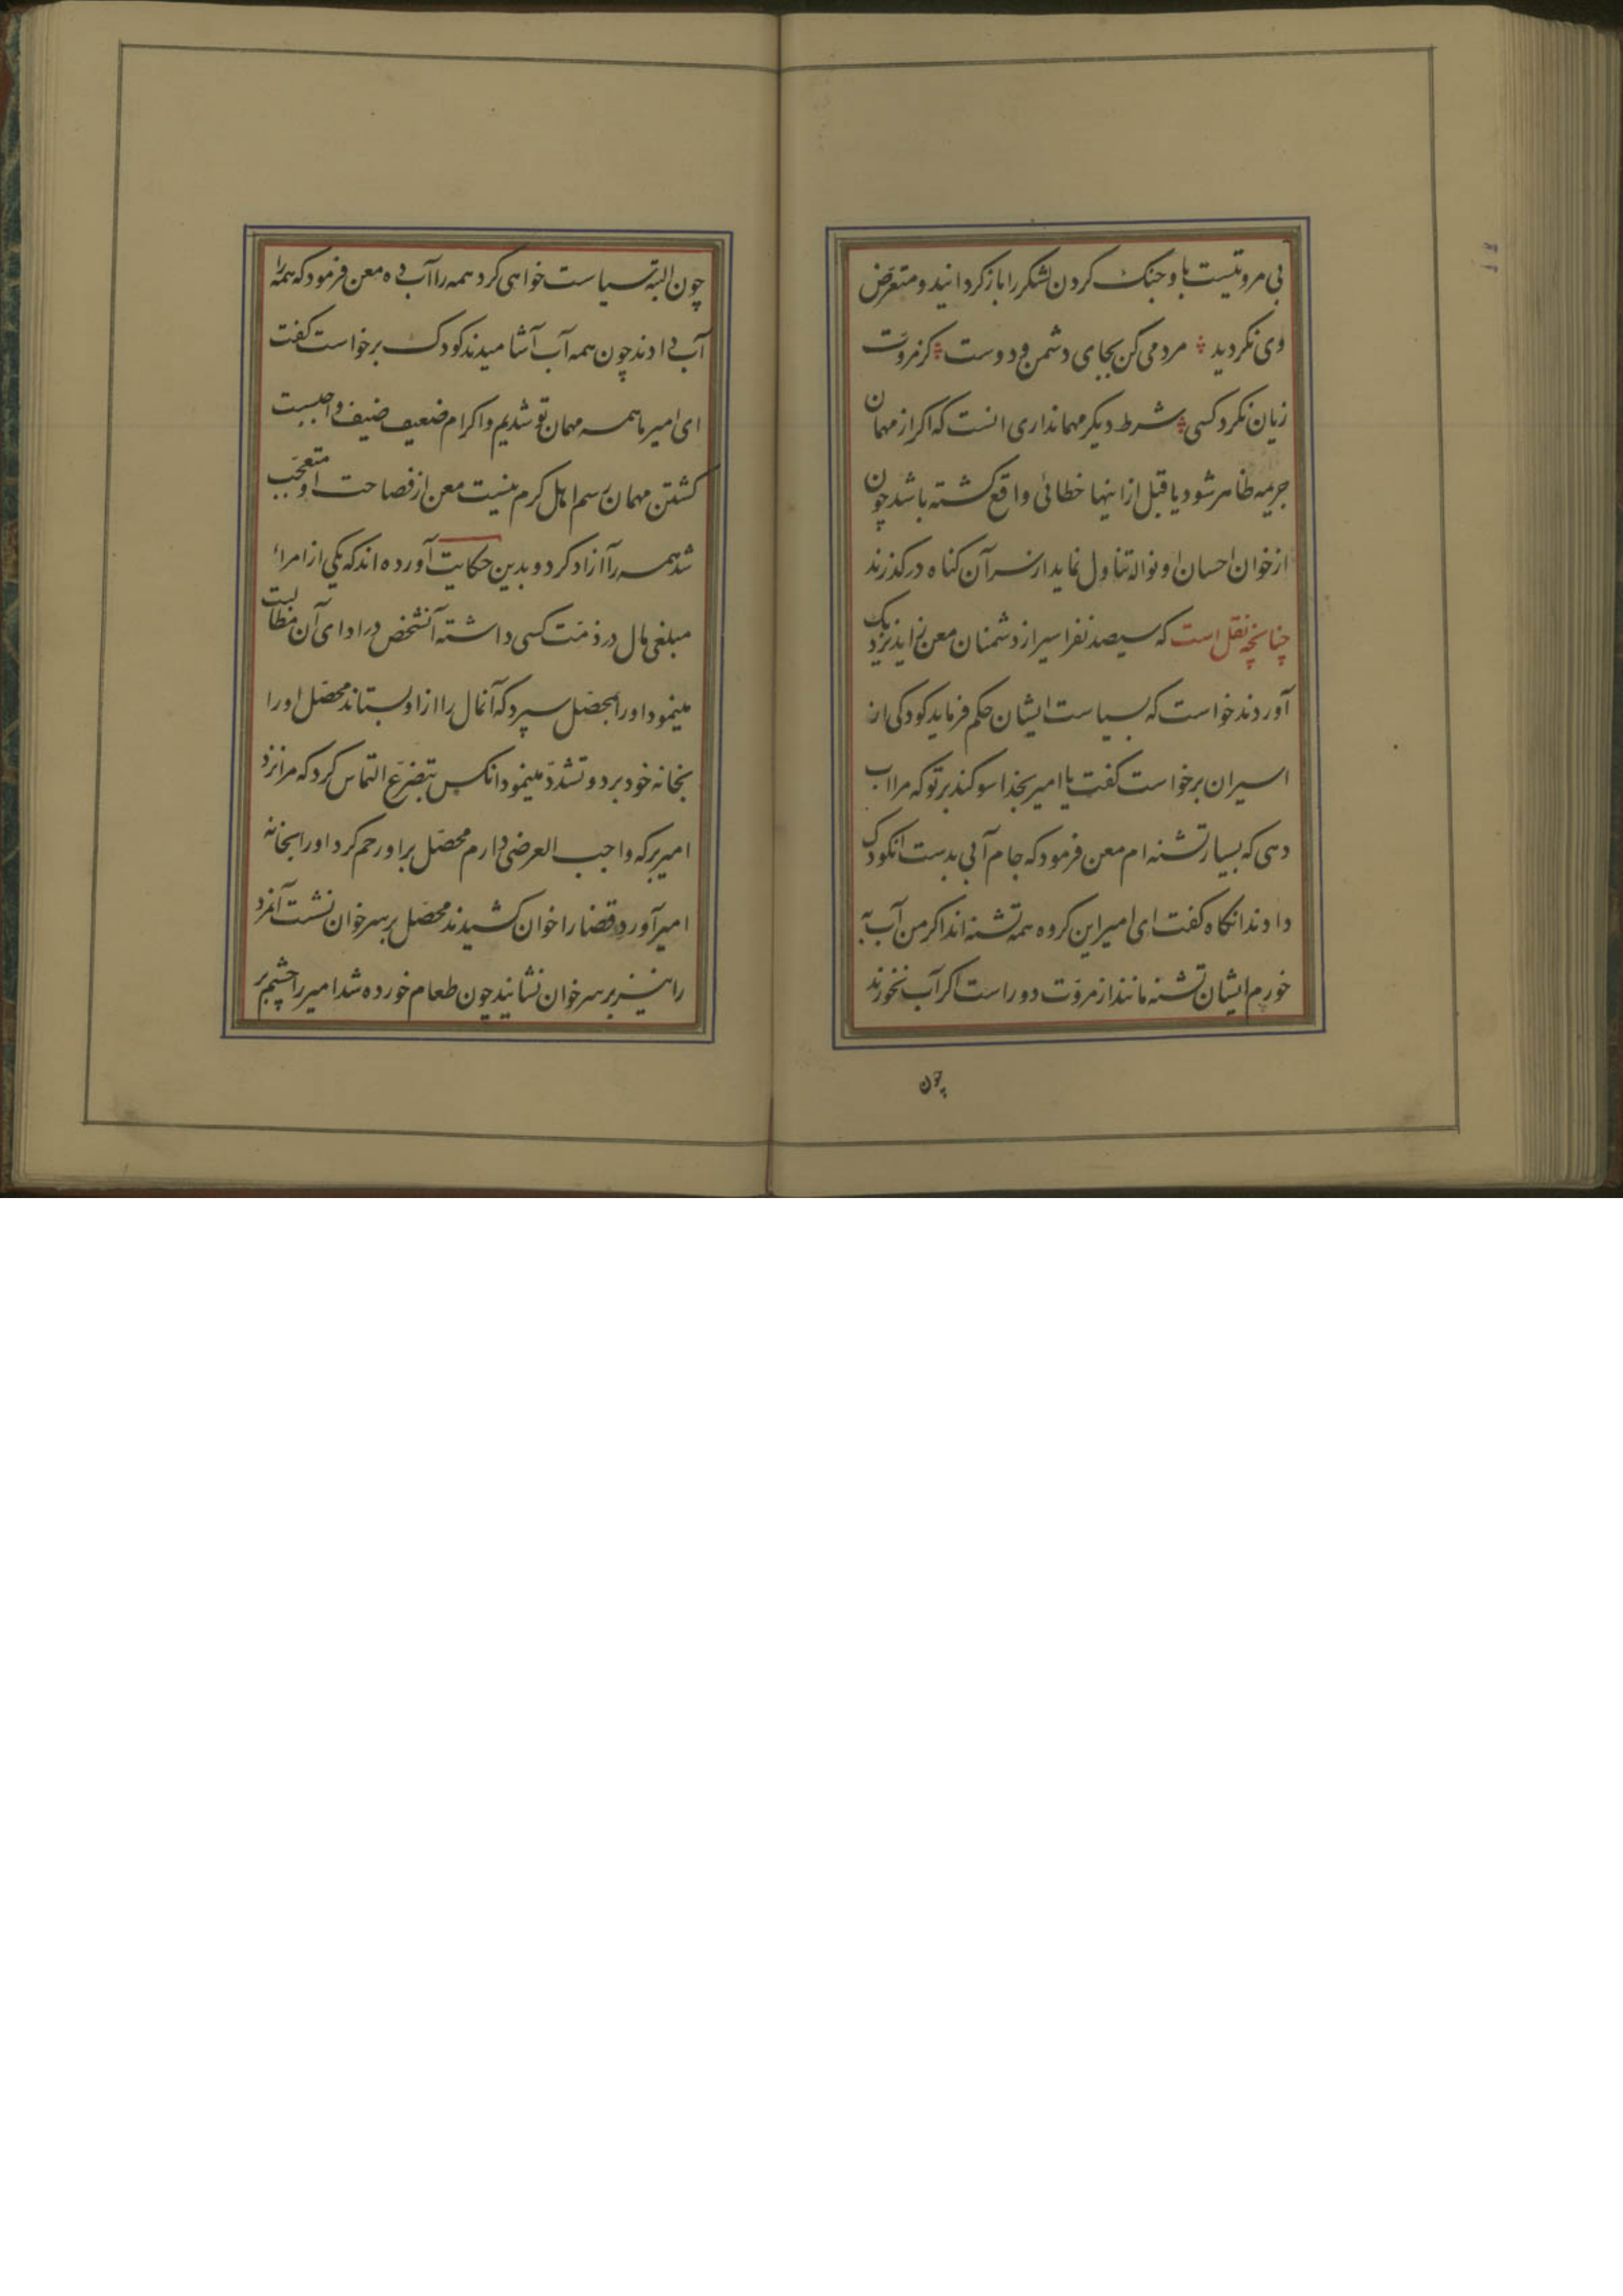 بی مروتیست با و جنک کردن لشکر را باز کردانید و متعرض
وی نکردید مردمی کن بجای دشمن و دوست کز مروت
زیان نکرد کسی شرط دیکر مهمانداری انست که اکر از مهمان
جریمه ظاهر شود یا قبل از اینها خطائی واقع کشته باشد چون
از خوان احسان او نواله تناول نماید از سر آن کناه درکذرند
چنانچه نقل است که سیصد نفر اسیر از دشمنان معن زایذ نزدیک
آوردند خواست که بسیاست ایشان حکم فرماید کودکی از
اسیران برخواست کفت یا امیر بخدا سوکند بر تو که مرا اب
دهی که بسیار تشنه ام معن فرمود که جام آبی بدست انکودک
دادند انکاه کفت ای امیر این کروه همه تشنه اند اکر من آب
خورم ایشان تشنه مانند از مروت دور است اکر آب نخورند
چون
چون البته سیاست خواهی کرد همه را آب ده معن فرمود که همه را
آب دادند چون همه آب آشامیدند کودک برخواست کفت
ای امیر ما همه مهمان تو شدیم و اکرام ضعیف ضیف واجبست
کشتن مهمان رسم اهل کرم نیست معن از فصاحت او متعجب
شد همه را آزاد کرد و بدین حکایت آورده اند که یکی از امراء
مبلغی مال در ذمت کسی داشته آنشخص در ادای آن مطالبت
مینمود او را بمحصّل سپرد که آنمال را از او بستاند محصّل او را
بخانه خود برد و تشدّد مینمود انکس بتضرّع التماس کرد که مرا نزد
امیر بر که واجب العرضی دارم محصّل بر او رحم کرد او را بخانه
امیر آورد قضا را خوان کشیدند محصّل بر سر خوان نشست آنمرد
را نیز بر سر خوان نشانید چون طعام خورده شد امیر را چشم بر